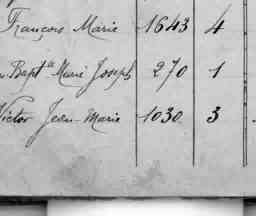 François Marie 1643 4
Bapte Marie Joseph 270 1
Victor Jean-Marie 1030 3